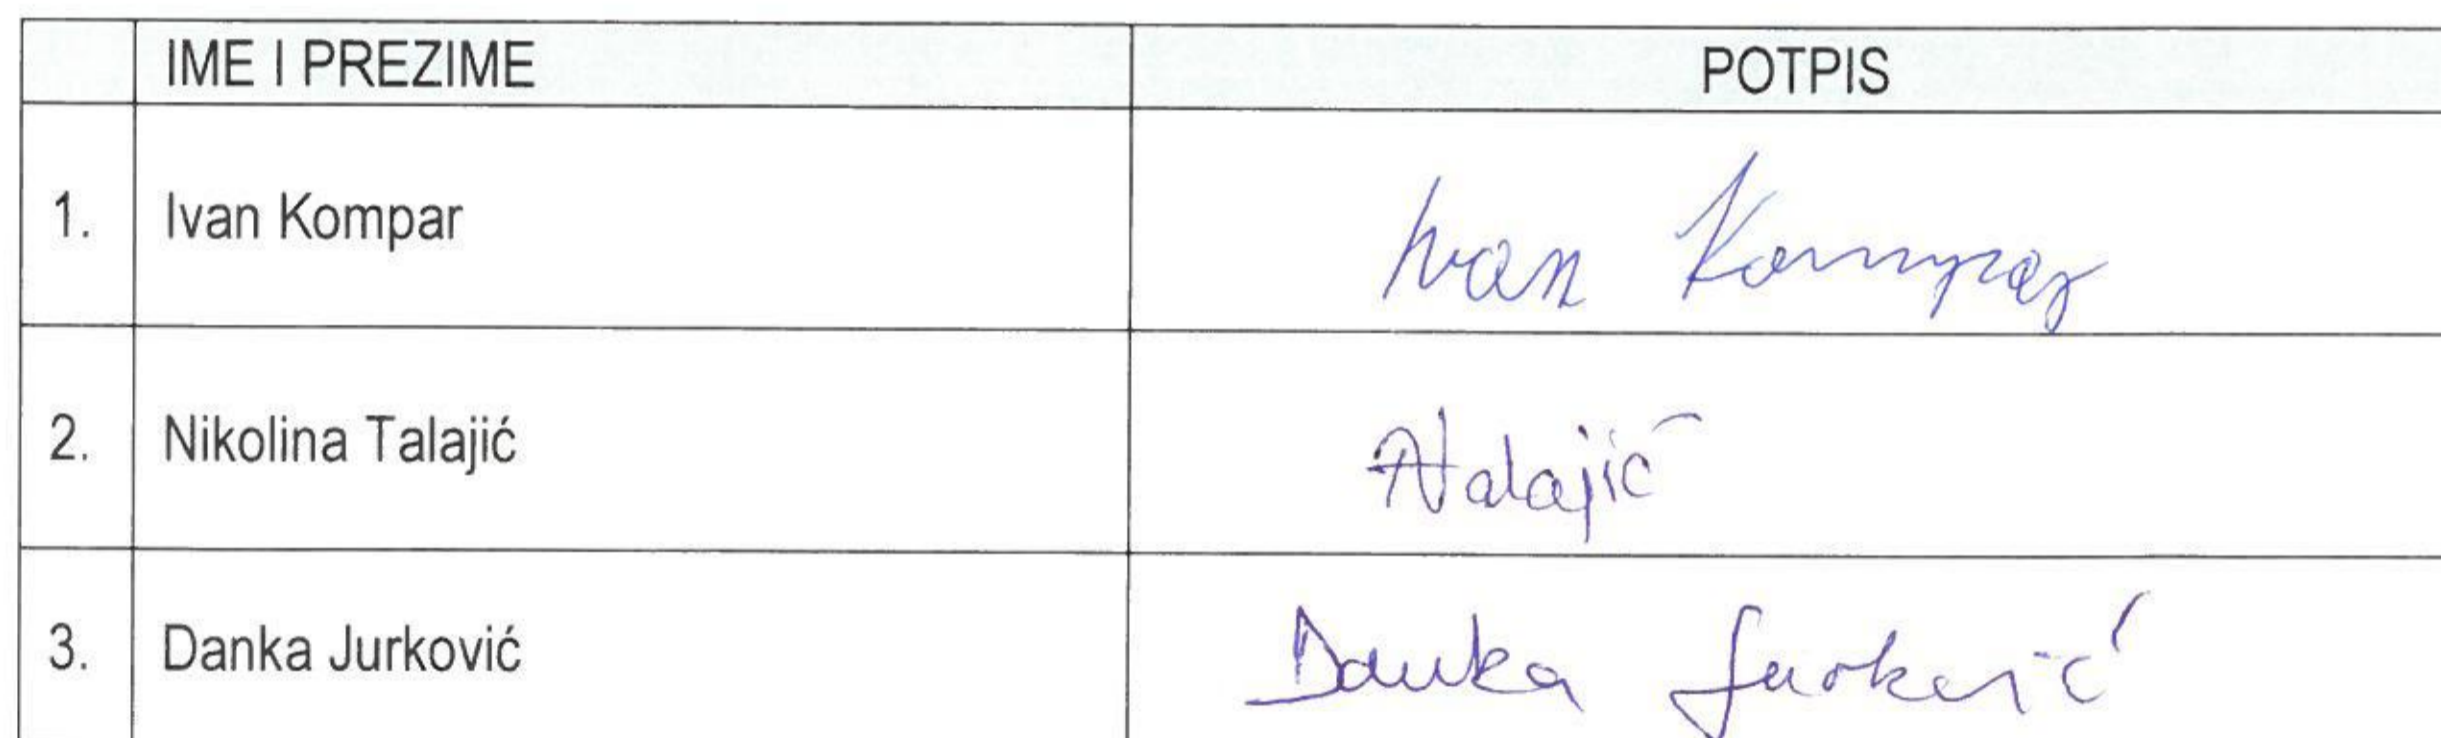 IME I PREZIME POTPIS
1. Ivan Kompar Ivan Kompar
2. Nikolina Talajić NTalajić
3. Danka Jurković Danka Jurković